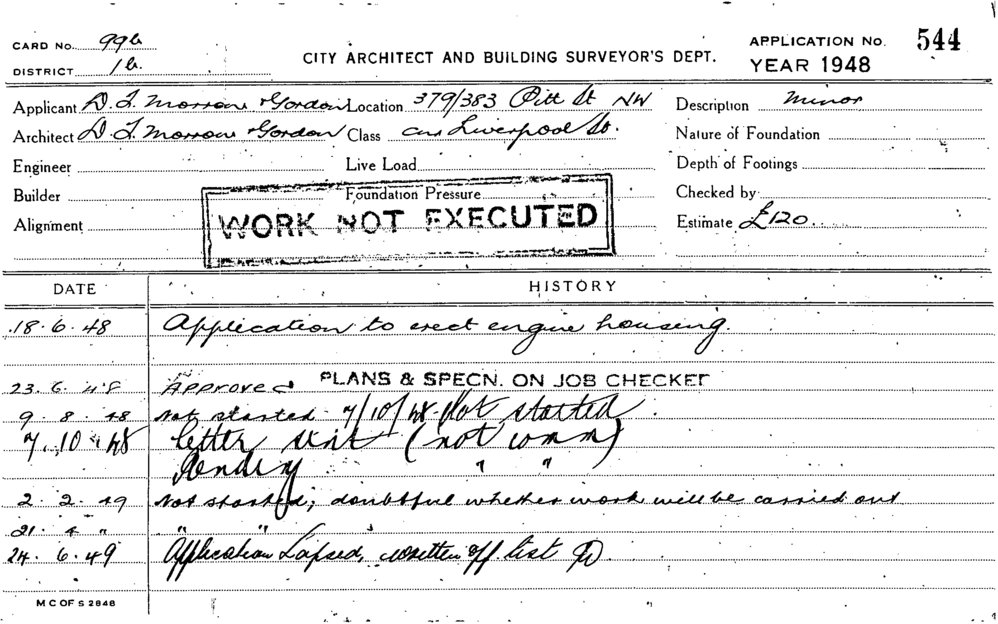 CARD No. 99b
DISTRICT 1b.
CITY ARCHITECT AND BUILDING SURVEYOR'S DEPT.
APPLICATION No. 544
YEAR 1948
Applicant D. T. Morrow & Gordon Location 379/383 Pitt St NW Description Minor
Architect D. T. Morrow & Gordon Class cnr Liverpool St. Nature of Foundation
Engineer Live Load Depth of Footings
Builder Foundation Pressure Checked by
Alignment Estimate £120
WORK NOT EXECUTED
DATE HISTORY
18.6.48 Application to erect engine housing.
23.6.48 Approved PLANS & SPECN. ON JOB CHECKED
9.8.48 Not started 7/10/48 Not started
7.10.48 letter sent (not comm)
" "
2.2.49 Not started; doubtful whether work will be carried out
21.4." " "
24.6.49 Application Lapsed, written off list
M C OF S 2848